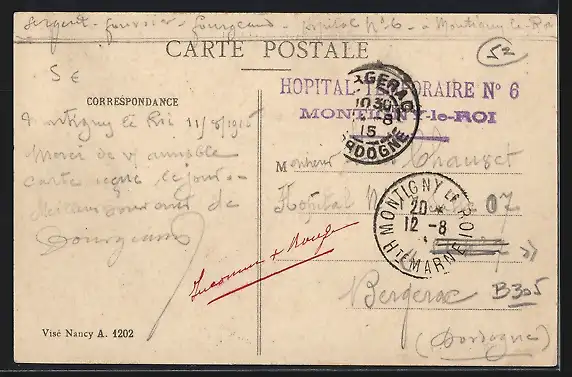 Sergent Fourrier Gourgeaud - Hôpital N° 6 - à Montigny le Roi
CARTE POSTALE
52
5 €
HOPITAL TEMPORAIRE N° 6
MONTIGNY-le-ROI
CORRESPONDANCE
Montigny le Roi 11/8/1915
Merci de v/ aimable
carte reçue ce jour -
Meilleurs souvenirs de
Gourgeaud
BERGERAC
10 30
-8
15
DORDOGNE
Monsieur Chauset
Hôpital 07
MONTIGNY LE ROI
20 *
12 -8
HTE MARNE
Inconnu + Rouge
Bergerac
B305
(Dordogne)
Visé Nancy A. 1202